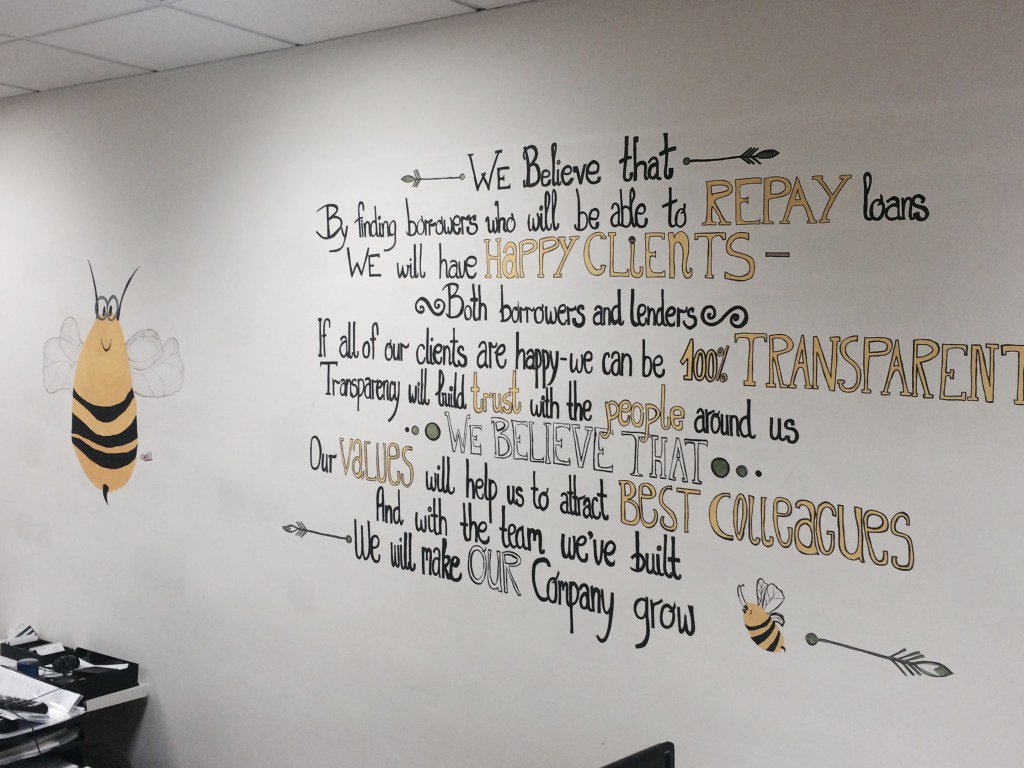 WE Believe that
By finding borrowers who will be able to REPAY loans
WE will have HAPPY CLIENTS –
Both borrowers and lenders
If all of our clients are happy-we can be 100% TRANSPARENT
Transparency will build trust with the people around us
WE BELIEVE THAT
Our VALUES will help us to attract BEST COLLEAGUES
And with the team we've built
We will make OUR Company grow